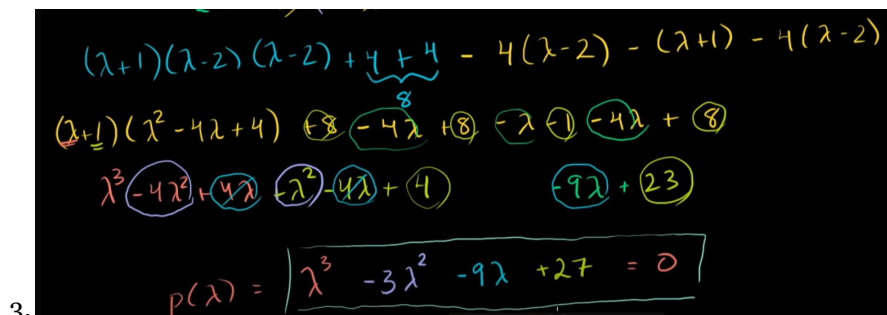 (λ+1)(λ-2)(λ-2) + 4 + 4 - 4(λ-2) - (λ+1) - 4(λ-2)
8
(λ+1)(λ² - 4λ + 4) +8 - 4λ +8 - λ - 1 - 4λ + 8
λ³ - 4λ² + 4λ - λ² - 4λ + 4 - 9λ + 23
p(λ) = λ³ - 3λ² - 9λ + 27 = 0
3.